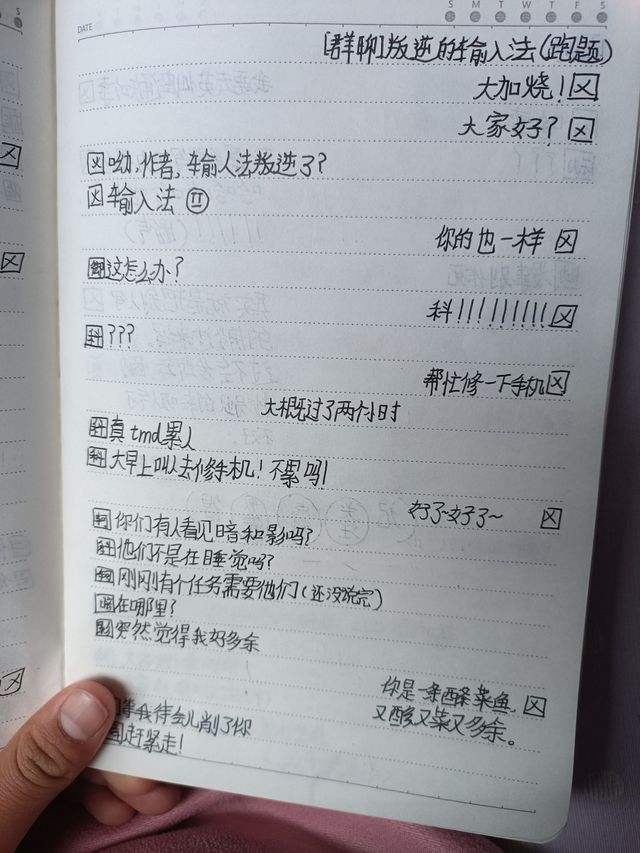 S M T W T F S
DATE
[群聊]叛逆的输入法(跑题)
大加烧！
大家好？
呦,作者,输入法叛逆了?
输入法
你的也一样
这怎么办?
科!!!!!!!!!
科???
帮忙修一下手机
大概过了两个小时
科真tmd累人
科大早上叫人去修手机!不累吗
好了好了~
你们有人看见暗和影吗?
他们不是在睡觉吗?
刚刚有个任务需要他们(还没说完)
在哪里?
突然觉得我好多余
你是一条酸菜鱼,
又酸又菜又多余。
等我待会儿削了你
赶紧走!